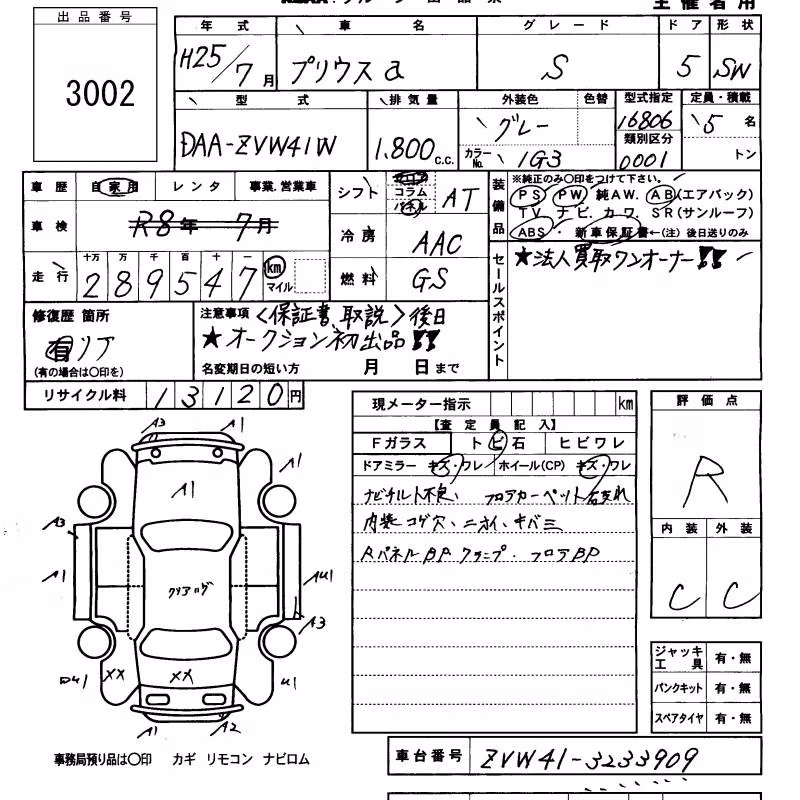 主催者用
出品番号
3002
年式 車名 グレード ドア 形状
H25/7月 プリウスα S 5 SW
型式 排気量 外装色 色替 型式指定 定員・積載
DAA-ZVW41W 1.800c.c. グレー 16806 5名
カラーNo. 1G3 類別区分 0001 トン
車歴 自家用 レンタ 事業.営業車
車検 R8年 7月
走行 十万 万 千 百 十 一
289547 km マイル
シフト コラム パネル AT
冷房 AAC
燃料 GS
装備品 ※純正のみ〇印をつけて下さい。
PS PW 純AW. AB(エアバック)
TV ナビ. カワ. SR(サンルーフ)
ABS・新車保証書←(注)後日送りのみ
セールスポイント
★法人買取ワンオーナー!!
修復歴 箇所
有 リア
(有の場合は〇印を)
注意事項 <保証書、取説>後日
★オークション初出品!!
名変期日の短い方 月 日まで
リサイクル料 13120円
現メーター指示 km
【査定員記入】
Fガラス トビ石 ヒビワレ
ドアミラー キズ・ワレ ホイール(CP) キズ・ワレ
ナビチルト不良、フロアカーペット
内装コゲ穴、ニオイ、キバミ
RパネルBPクランプ. フロアBP
評価点
R
内装 外装
C C
A3 A1
A1 A1
A3
A1 AU1
A3
XX XX U1
A1 A2
ジャッキ工具 有・無
パンクキット 有・無
スペアタイヤ 有・無
事務局預り品は〇印 カギ リモコン ナビロム
車台番号 ZVW41-3233909